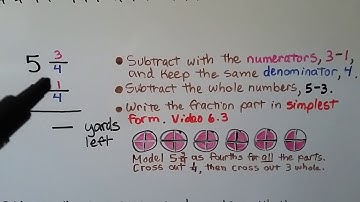 5 3/4
1/4
— yards left
• Subtract with the numerators, 3-1,
and keep the same denominator, 4.
• Subtract the whole numbers, 5-3.
• Write the fraction part in simplest
form. Video 6.3
Model 5 3/4 as fourths for all the parts.
Cross out 1/4, then cross out 3 whole.